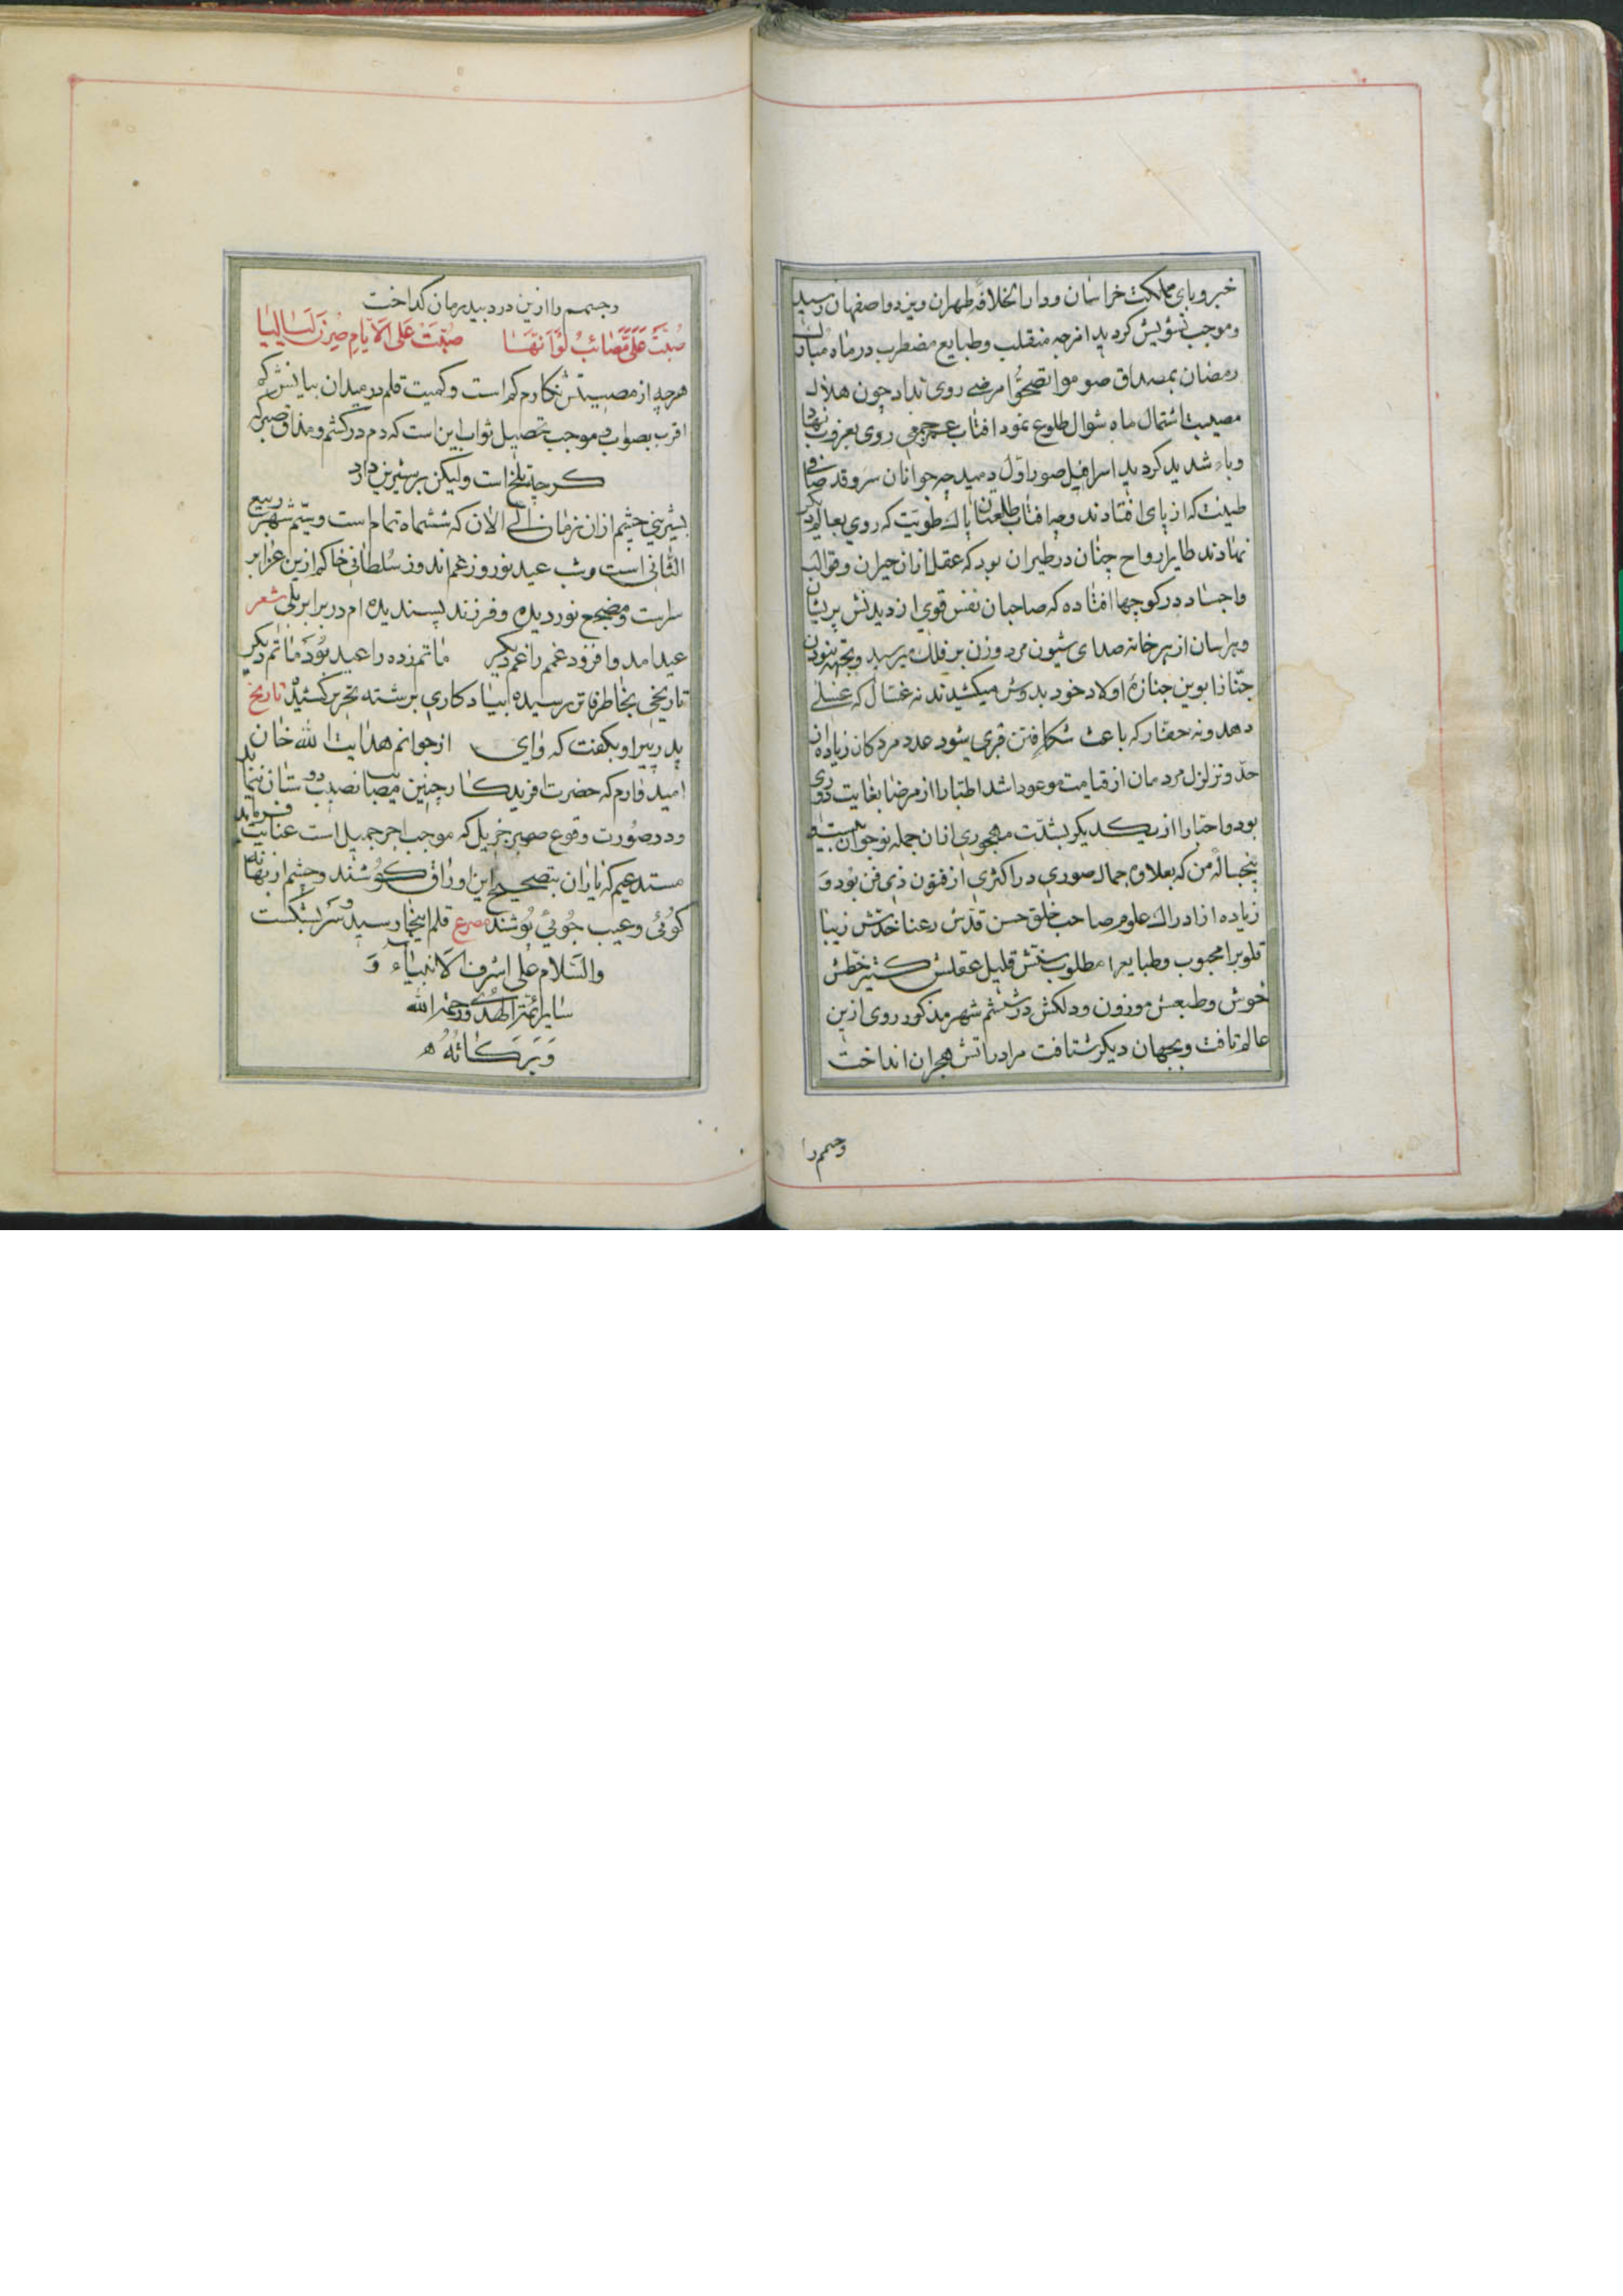 خبر وبای مملکت خراسان و دار الخلافۀ طهران و یزد و اصفهان رسید
و موجب تشویش کردید امزجه منقلب و طبایع مضطرب در ماه مبارک
رمضان بمصداق صوموا تصحّوا مرضی روی نداد چون هلال
مصیبت اشتمال ماه شوال طلوع نمود افتاب عمر جمعی روی بغروب نهاد
وباء شدید کردید اسرافیل صور اوّل دمید چه جوانان سرو قد صافی
طینت که از پای افتادند و چه افتاب طلعتان پاک طویّت که روی بعالم دیکر
نهادند طایر ارواح چنان در طیران بود که عقل ازان حیران و قوالب
و اجساد در کوچها افتاده که صاحبان نفس قوی از دیدنش پریشان
و هراسان از هر خانه صدای شیون مرد و زن بر فلک میرسید و بجهة نبودن
جنّازا بوین جنازۀ اولاد خود بدوش میکشیدند نه غسّال که غسلی
دهد و نه حفار که باعث شکافتن قبری شود عدد مردکان زیاده از
حدّ و تزلزل مردمان از قیامت موعود اشد اطبّا را از مرضا بغایت دوری
بود و احبّا را از یکدیکر بشدّت مهجوری ازان جمله نوجوان بیست و
پنجسالۀ من که بعلاوۀ جمال صوری در اکثری از فنون ذی فن بود و
زیاده از ادراک علوم صاحب خلق حسن قدّش رعنا خدّش زیبا
قلوبرا محبوب و طبایعرا مطلوب سنّش قلیل عقلش کثیر خطّش
خوش و طبعش موزون و دلکش در ششم شهر مذکور روی ازین
عالم تافت و بجهان دیکر شتافت مرا در اتش هجران انداخت
و جسمم را
و جسمم را ازین درد بیدرمان کداخت
صُبَّتْ عَلَیَّ مَصَائبٌ لَوْ اَنَّهَا صُبَّتْ عَلَی الاَیّامِ صِرْنَ لَیَالِیَا
هرچه از مصیبتش نکارم کم است و کمیت قلم در میدان بیانش کم
اقرب بصواب و موجب تحصیل ثواب این است که دم درکشم و مذاق صبر که
کرچه تلخ است ولیکن بر شیرین دارد
بشیرینی چشم ازان زمان الی الان که ششماه تمام است و ششم شهر ربیع
الثانی است و شب عید نوروز غم اندوز سلطانی خاکم ازین عزا بر
سر است و مضجع نور دیده و فرزند پسندیده ام در برابر بلی شعر
عید امد و افزود غمم را غم دیکر ماتم زده را عید بود ماتم دیکر
تاریخی بخاطر فاتر رسیده ابیاد کاری برشته تحریر کشید تاریخ
پدر پیر او بکفت که وای از جوانم هدایت الله خان
امید وارم که حضرت افریدکار چنین مصیبت نصیب دوستان ننماید
و در صورت وقوع صبر جزیل که موجب اجر جمیل است عنایت فرماید
مستدعیم که یاران بتصحیح این اوراق کوشند و چشم از بهانه
کوئی و عیب جوئی پوشند مصرع قلم اینجا رسید و سر بشکست
والسّلام علی اشرف الانبیاء و
سایر ائمّة الهدی و رحمة الله
وَ بَرَکَاتُهُ